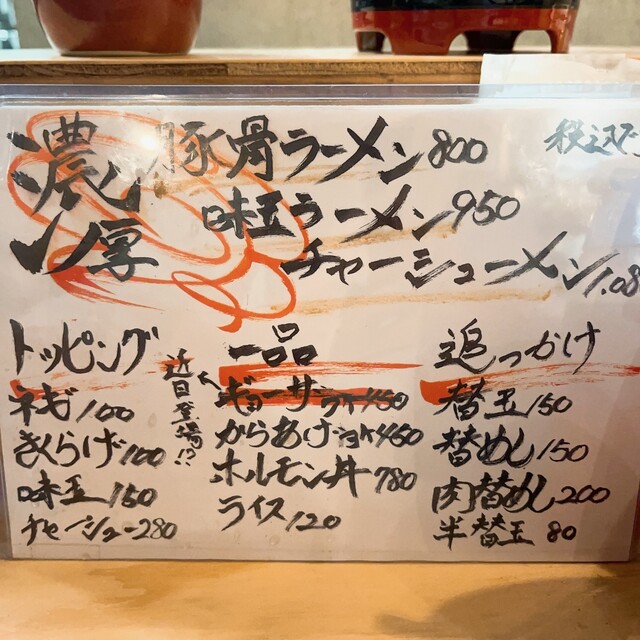 濃厚
豚骨ラーメン 800
税込
味玉ラーメン 950
チャーシューメン 1.08
トッピング
ネギ 100
きくらげ 100
味玉 150
チャーシュー 280
近日登場!?
一品
ギョーザ 5ケ 450
からあげ 3ケ 450
ホルモン丼 780
ライス 120
追っかけ
替玉 150
替めし 150
肉替めし 200
半替玉 80